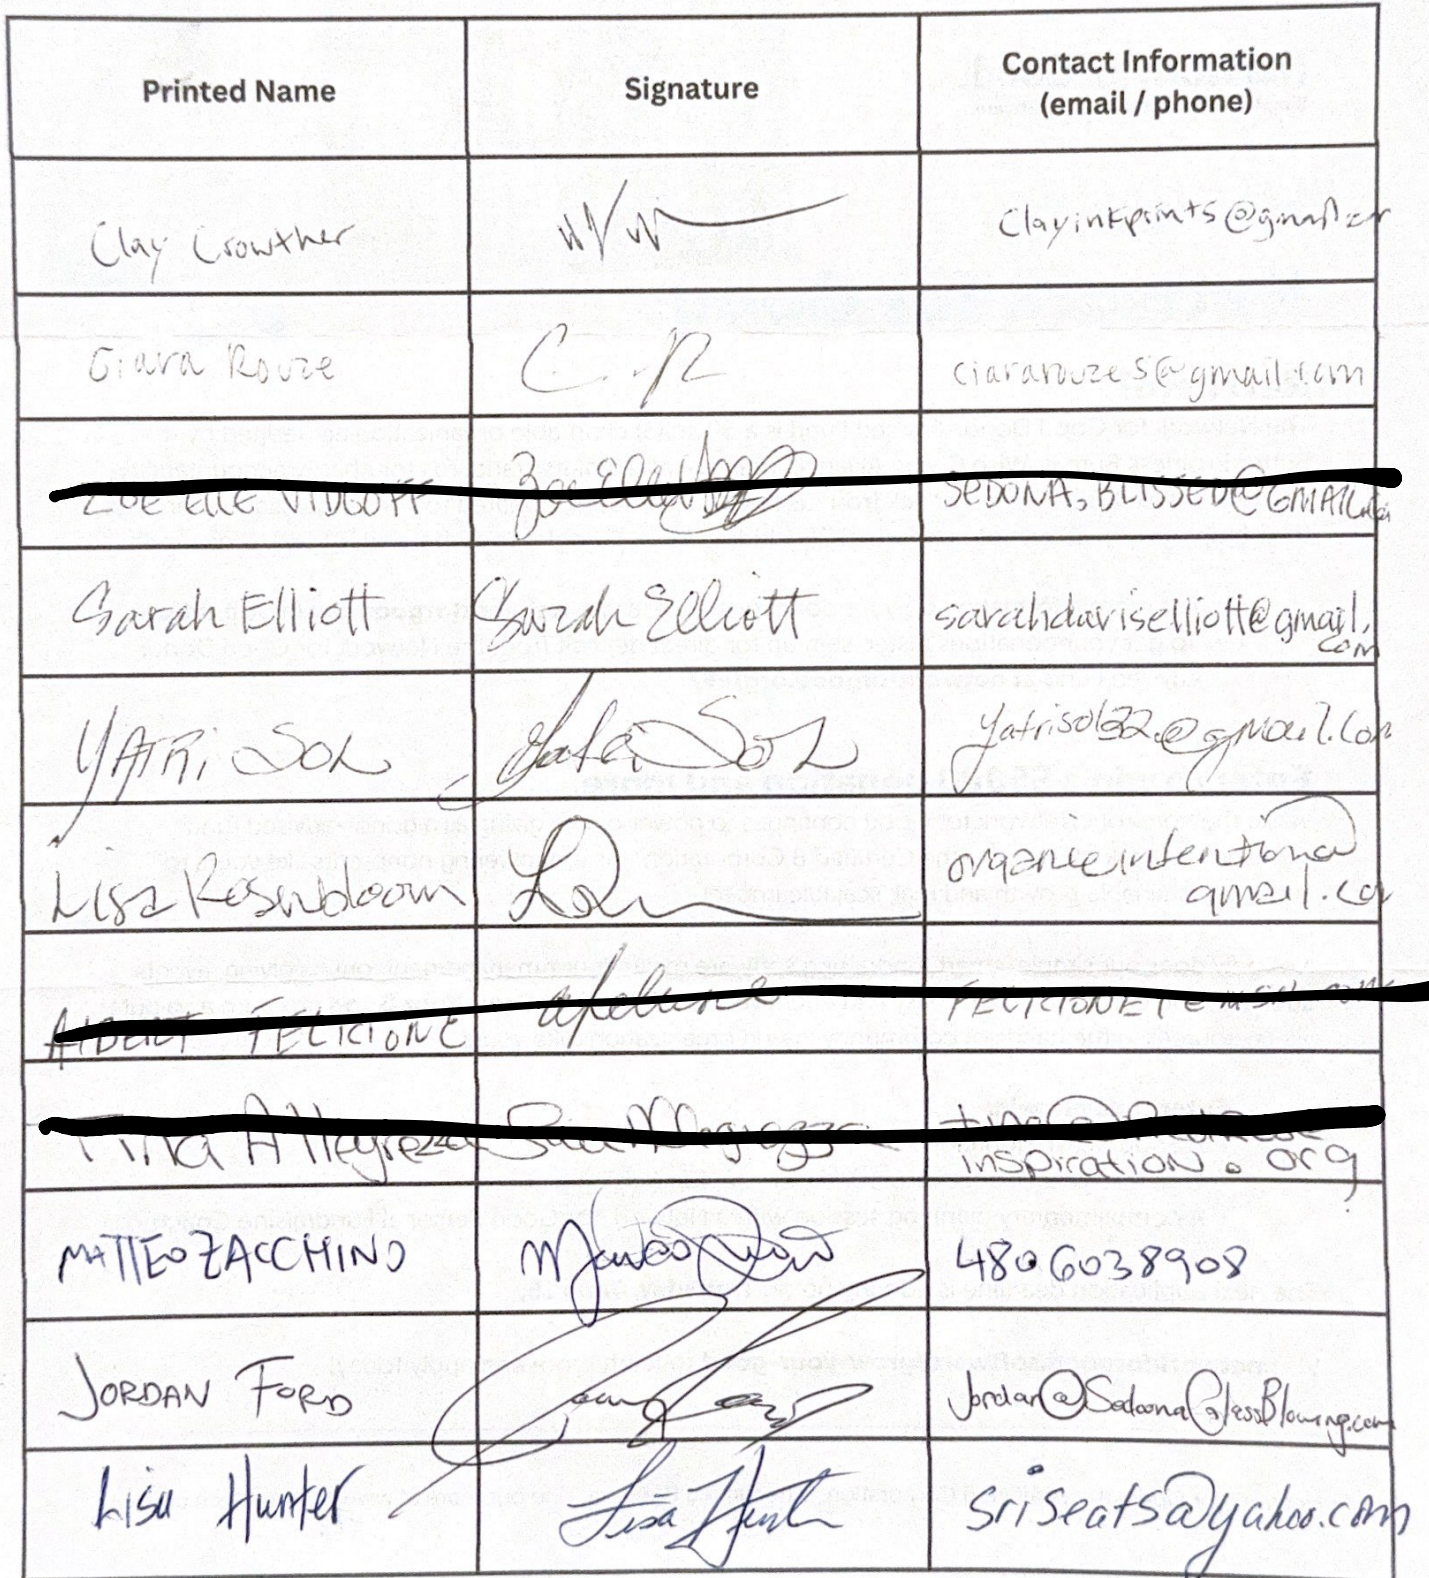 Printed Name Signature Contact Information
(email / phone)
Clay Crowther Clayinkprints@gmail.com
Ciara Rouze C. R ciararouze5@gmail.com
ZOE ELLE VIDGOFF SEDONA.BLISSED@GMAIL.com
Sarah Elliott Sarah Elliott sarahdaviselliott@gmail.
com
YATRi SOL Yatri Sol yatrisol22@gmail.com
Lisa Rosenbloom organicintention@
gmail.com
ALBERT FELICIONE
Tina Allegrezza
inspiration.org
MATTEO ZACCHINO 4806038908
JORDAN FORD Jordan@SedonaGlassBlowing.com
Lisa Hunter Lisa Hunter sriseats@yahoo.com